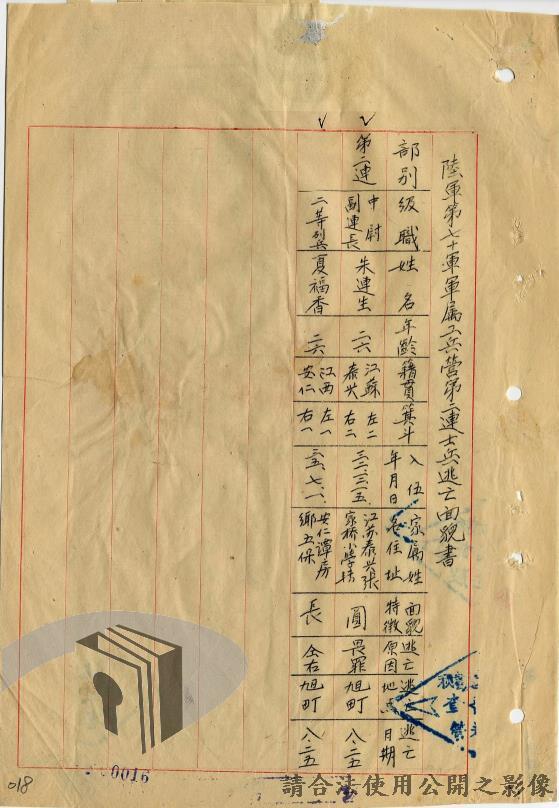 陸軍第七十軍軍屬工兵營第二連士兵逃亡面貌書
部別
級職
姓名
年齡
籍貫
箕斗
入伍年月日
家屬姓名住址
面貌特徵
逃亡原因
逃亡地點
逃亡日期
第二連
中尉副連長
朱連生
二六
江蘇泰兴
左二右二
三三、三、五、
江苏泰兴張家桥小學转
圓
畏罪
旭町
八、二五
二等列兵
夏福香
二六
江西安仁
左一右一
三五、七、一、
安仁譚房鄉五保
長
仝右
旭町
八、二五
0016
018
請合法使用公開之影像